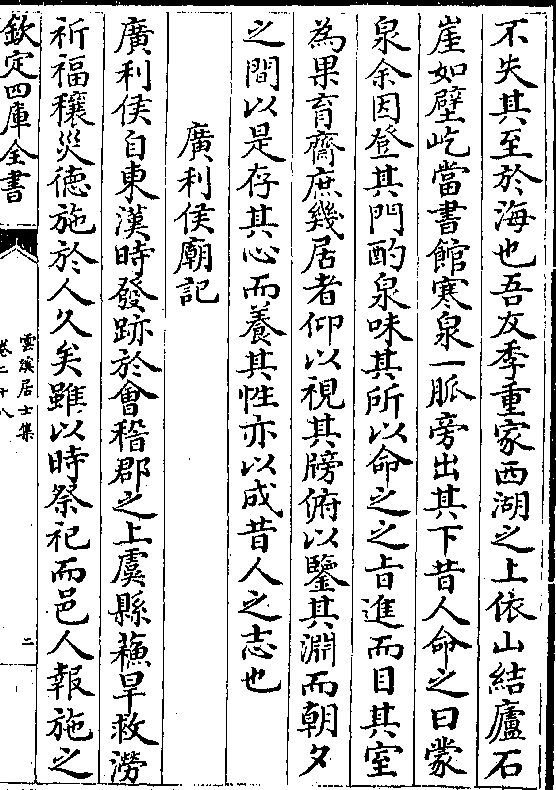 不失其至於海也吾友季重家西湖之上依山結廬石
崖如壁屹當書館寒泉一脈旁出其下昔人命之曰蒙
泉余因登其門酌泉味其所以命之之㫖進而目其室
為果育齋庶幾居者仰以視其牓俯以鑒其淵而朝夕
之間以是存其心而養其性亦以成昔人之志也
廣利侯廟記
廣利侯自東漢時發跡於會稽郡之上虞縣蘓旱救澇
祈福穰災德施於人久矣雖以時祭祀而邑人報施之
欽定四庫全書
雲溪居士集
卷二十八
二